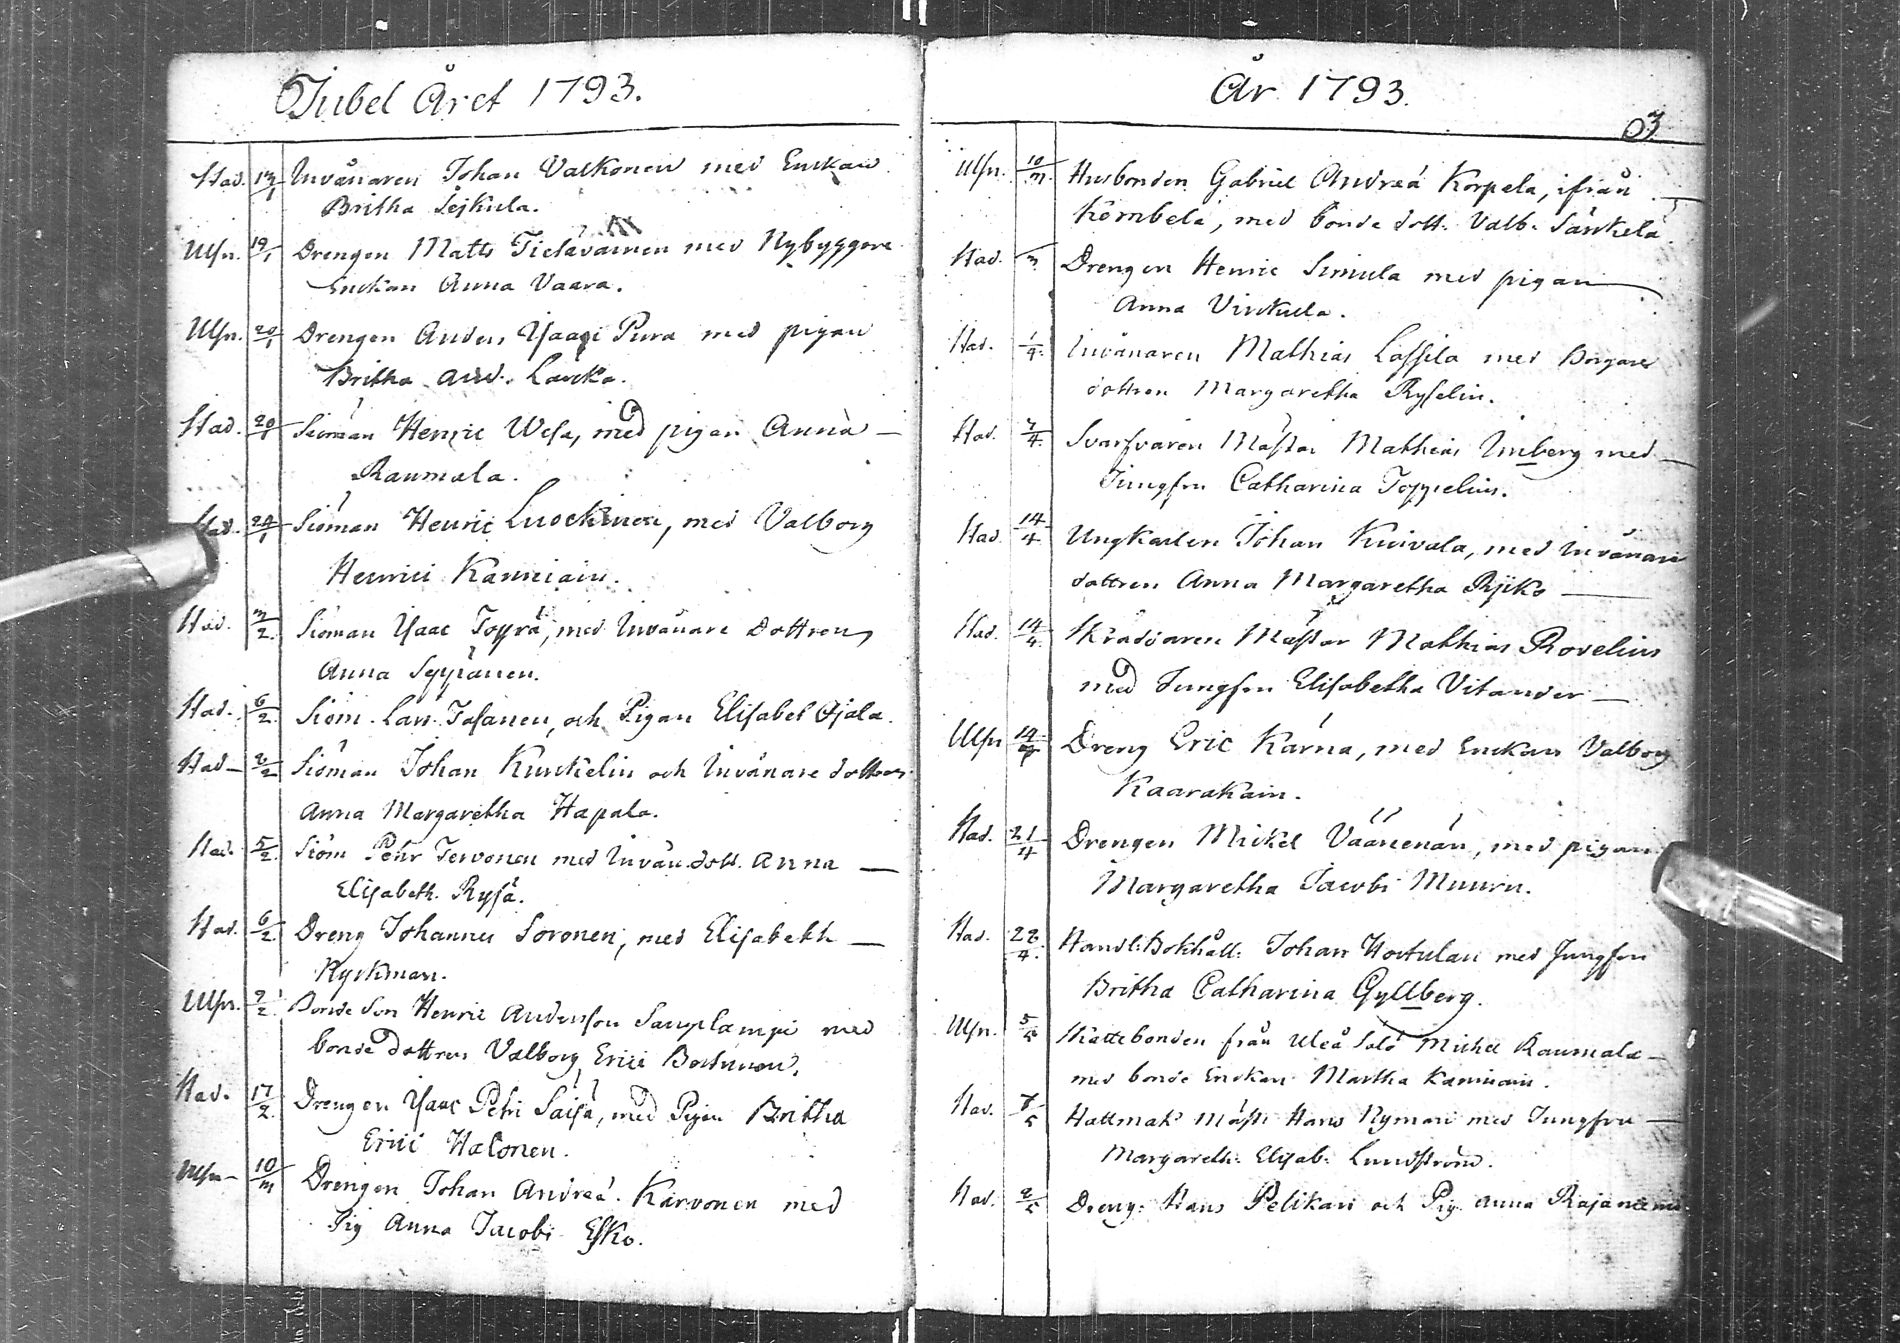 Jubel Året 1793.
Stad. 13/1 Invånaren Johan Valkonen med Enckan
Britha Sejkula.
Ulfn. 19/1 Drengen Matts Tieläväinen med Nybyggare
Enckan Anna Vaara.
Ulfn. 20/1 Drengen Anders Isaaci Pura med pigan
Britha And. Lancka.
Stad. 20/1 Siöman Henric Wesa, med pigan Anna
Raumala.
Stad. 24/1 Siöman Henric Luockinen, med Valborg
Henrici Kanniain.
Stad. 3/2 Siöman Isaac Toppä, med Invånare Dottren
Anna
Stad. 6/2 Siöm. Lars Tasanen, och Pigan Elisabet Ojala.
Stad 2/2 Siöman Johan Kunckelin och Invånare dottren
Anna Margaretha Hapala.
Stad. 5/2 Siöm Pehr Tervonen med Invån. dott. Anna
Elisabeth. Rysä.
Stad. 6/2 Dreng Johannes Soronen, med Elisabeth
Ryckman.
Ulfn. Bonde Son Henric Andersson Sauplampi med
bonde dottren Valborg Erici
Stad. 17/2 Drengen Isaac Petri Säisä, med Pigan Britha
Erici Halonen.
Ulfn 10/3 Drengen Johan Andreæ Karvonen med
Pig Anna Jacobi Esko.
År 1793.
3
Ulfn. 10/3 Husbonden Gabriel Andreæ Korpela, ifrån
Kembelä, med bonde dott. Valb. Sänkelä
Stad. Drengen Henric Simula med pigan
Anna Virckula.
Stad. 1/4 Invånaren Mathias Lassila med Borgare
dottren Margaretha Ryselin.
Stad. 7/4 Svarfvaren Mästar Mathias Umberg med
Jungfru Catharina Toppelius.
Stad. 14/4 Ungkarlen Johan Kuivala, med Invånare
dottren Anna Margaretha Rijko
Stad. 14/4 Skräddaren Mästar Mathias Rovelius
med Jungfru Elisabetha Vitander
Ulfn 14/4 Dreng Eric Kärnä, med Enckan Valborg
Kaarakain.
Stad. 21/4 Drengen Mickel Väänenän, med pigan
Margaretha Jacobi Muuru.
Stad. 22/4. Handl: Bokhåll: Johan Hortulan med Jungfru
Britha Catharina Gyllberg.
Ulfn. 5/5 Skattebonden från Uleå Salo Michel Raumala
med bonde Enckan Martha Kanniain.
Stad. 7/5 Hattmak: Mäst: Hans Nyman med Jungfru
Margareth: Elisab: Lundström.
Stad. 9/5 Dreng: Hans Pelikan och Pig. Anna Rajaniemi.